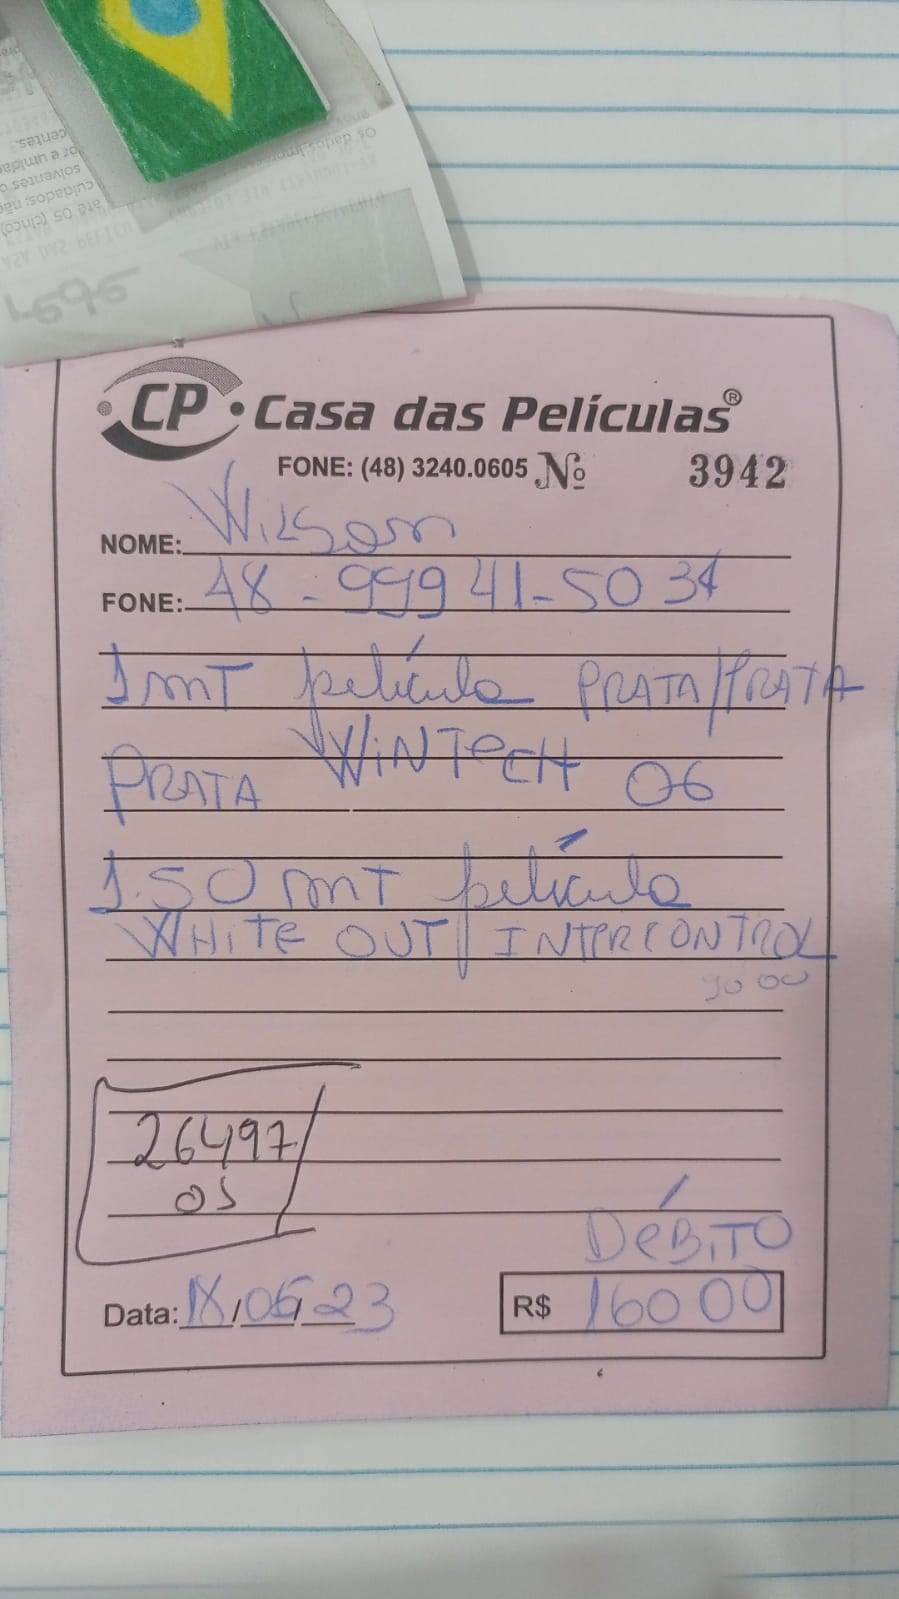 CP Casa das Películas®
FONE: (48) 3240.0605 Nº 3942
NOME: Wilson
FONE: 48 - 99941-5034
1 mT película PRATA/PRATA
PRATA WiNTecH 06
1.50 mT película
WHiTe OUT / INTERCONTROL
90 00
26497
OS
DéBiTO
Data: 18/05/23 R$ 160 00
rede